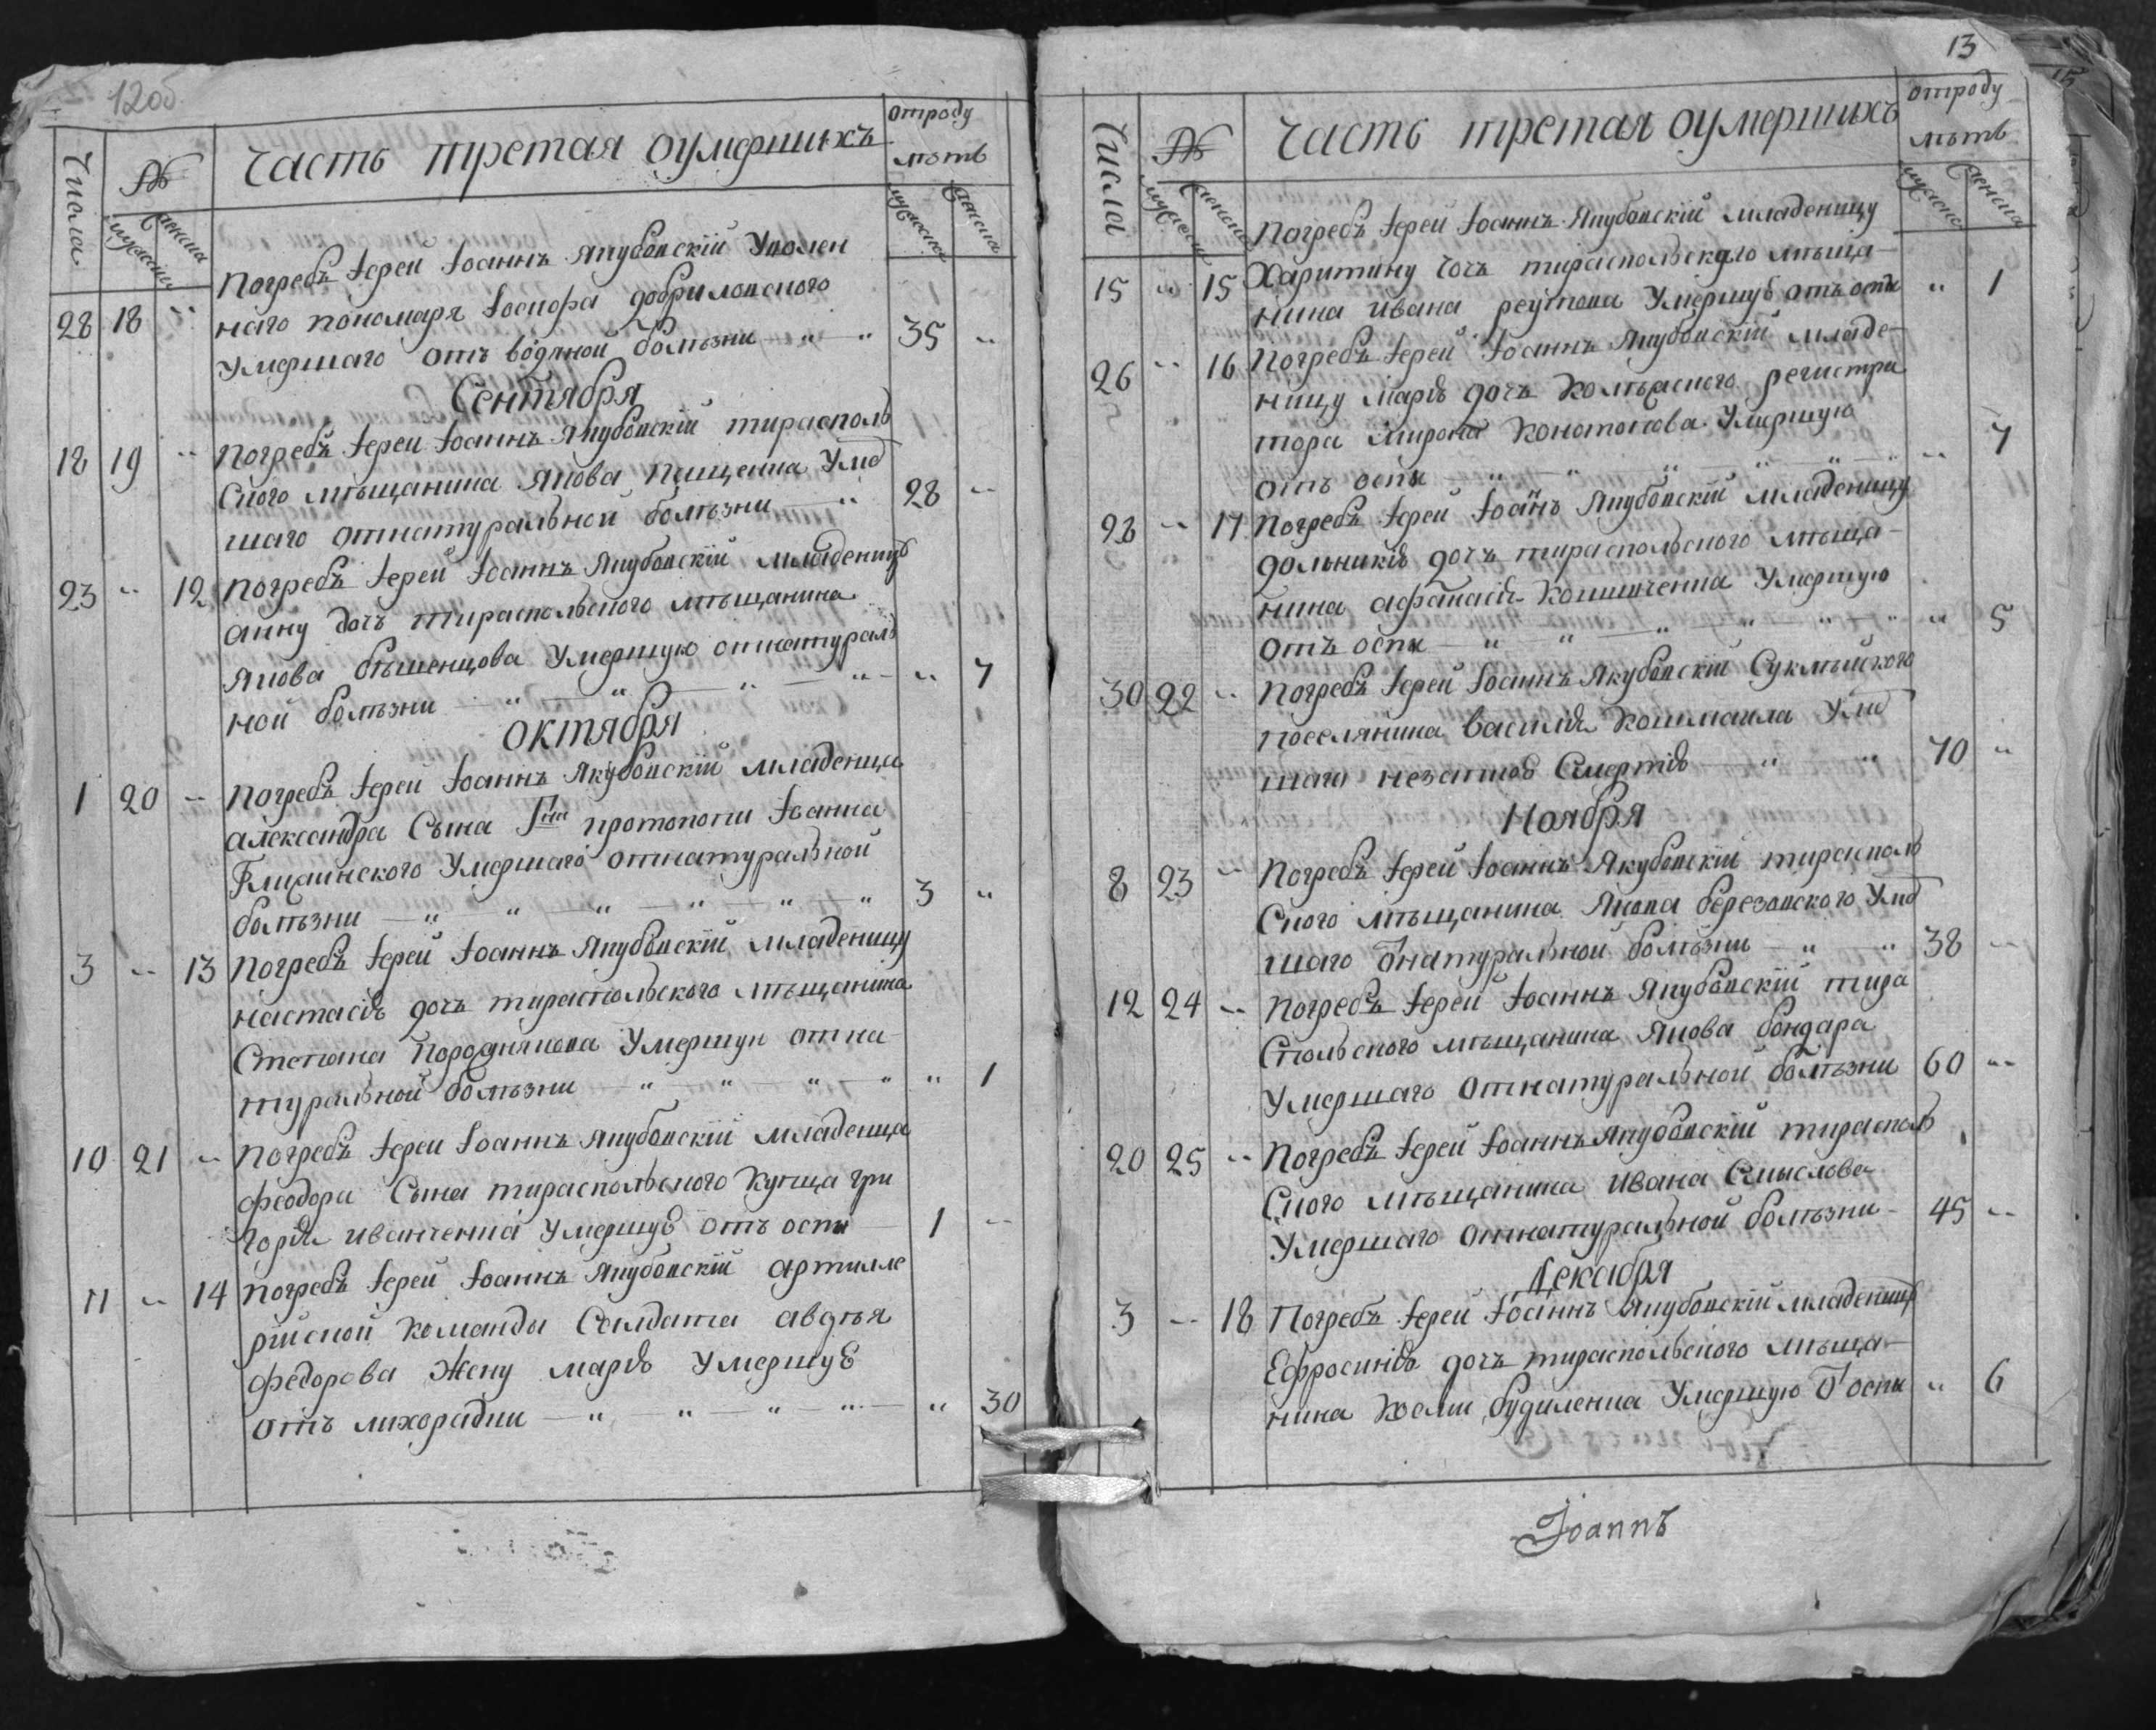 12об
Числа № Часть третая оумершихъ отроду
лѣтъ
мужска женска мужска женска
Погребъ Іерей Іоаннъ Якубовскій Уволен
28 18 " наго пономаря Іосифа добриловского
Умершаго отъ водяной болѣзни " 35 "
Сентября
18 19 " Погребъ Іереи Іоаннъ Якубовскій тирасполь
ского мѣщанина Якова Пащенка Умер
шаго отнатуральной болѣзни " 28 "
23 " 12 Погребъ Іерей Іоаннъ Якубовскій младеницу
анну дочъ тираспольского мѣщанина
Якова Умершую отнатураль
ной болѣзни " " " " " 7
октября
1 20 " Погребъ Іерей Іоаннъ Якубовскій младенца
александра Сына протопопи Іванна
Умершаго отнатуральной
болѣзни " " " " " " 3 "
3 " 13 Погребъ Іерей Іоаннъ Якубовскій младеницу
настасію дочъ тираспольского мѣщанина
Степана Умершую отна
туральной болѣзни " " " " " 1
10 21 " Погребъ Іереи Іоаннъ Якубовскій младенца
феодора Сына тираспольского Купца гри
горія иванченка Умершую отъ оспи 1 "
11 " 14 Погребъ Іерей Іоаннъ Якубовскій артилле
рийской команды Солдата авдѣя
федорова Жену марію Умершую
отъ лихорадки " " " " " 30
13
Числа № Часть третая оумершихъ отроду
лѣтъ
мужска женска мужска женска
Погребъ Іерей Іоаннъ Якубовскій младеницу
15 " 15 Харитину дочъ тираспольского мѣща
нина ивана реутова Умершую отъ оспи " 1
26 " 16 Погребъ Іерей Іоаннъ Якубовскій младе
ницу марію дочъ Колѣжского регистра
тора мирона Конотопова Умершую
отъ оспи " " " " " " 7
28 " 17 Погребъ Іерей Іоаннъ Якубовскій младеницу
дольникію дочъ тираспольского мѣща
нина афанасія Умершую
отъ оспи " " " " " " 5
30 22 " Погребъ Іерей Іоаннъ Якубовскій Суклѣйского
поселянина василія Умер
шаго незапною Смертію " " 70 "
Ноября
8 23 " Погребъ Іерей Іоаннъ Якубовскій тирасполь
ского мѣщанина Якова березовского Умер
шаго отнатуральной болѣзни " " 38 "
12 24 " Погребъ Іерей Іоаннъ Якубовскій тира
спольского мѣщанина Якова бондара
Умершаго отнатуральной болѣзни 60 "
20 25 " Погребъ Іерей Іоаннъ Якубовскій тирасполь
ского мѣщанина ивана Смыслова
Умершаго отнатуральной болѣзни 45 "
Декабря
3 " 18 Погребъ Іерей Іоаннъ Якубовскій младеницу
Ефросинію дочъ тираспольского мѣща
нина Умершую от оспи " 6
Іоаннъ